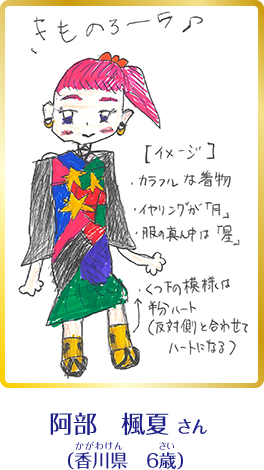 きものろーら♪
[イメージ]
・カラフルな着物
・イヤリングが「月」
・服の真ん中は「星」
・くつ下の模様は
半分ハート
(反対側と合わせて
ハートになる)
阿部 楓夏 さん
かがわけん さい
(香川県 6歳)